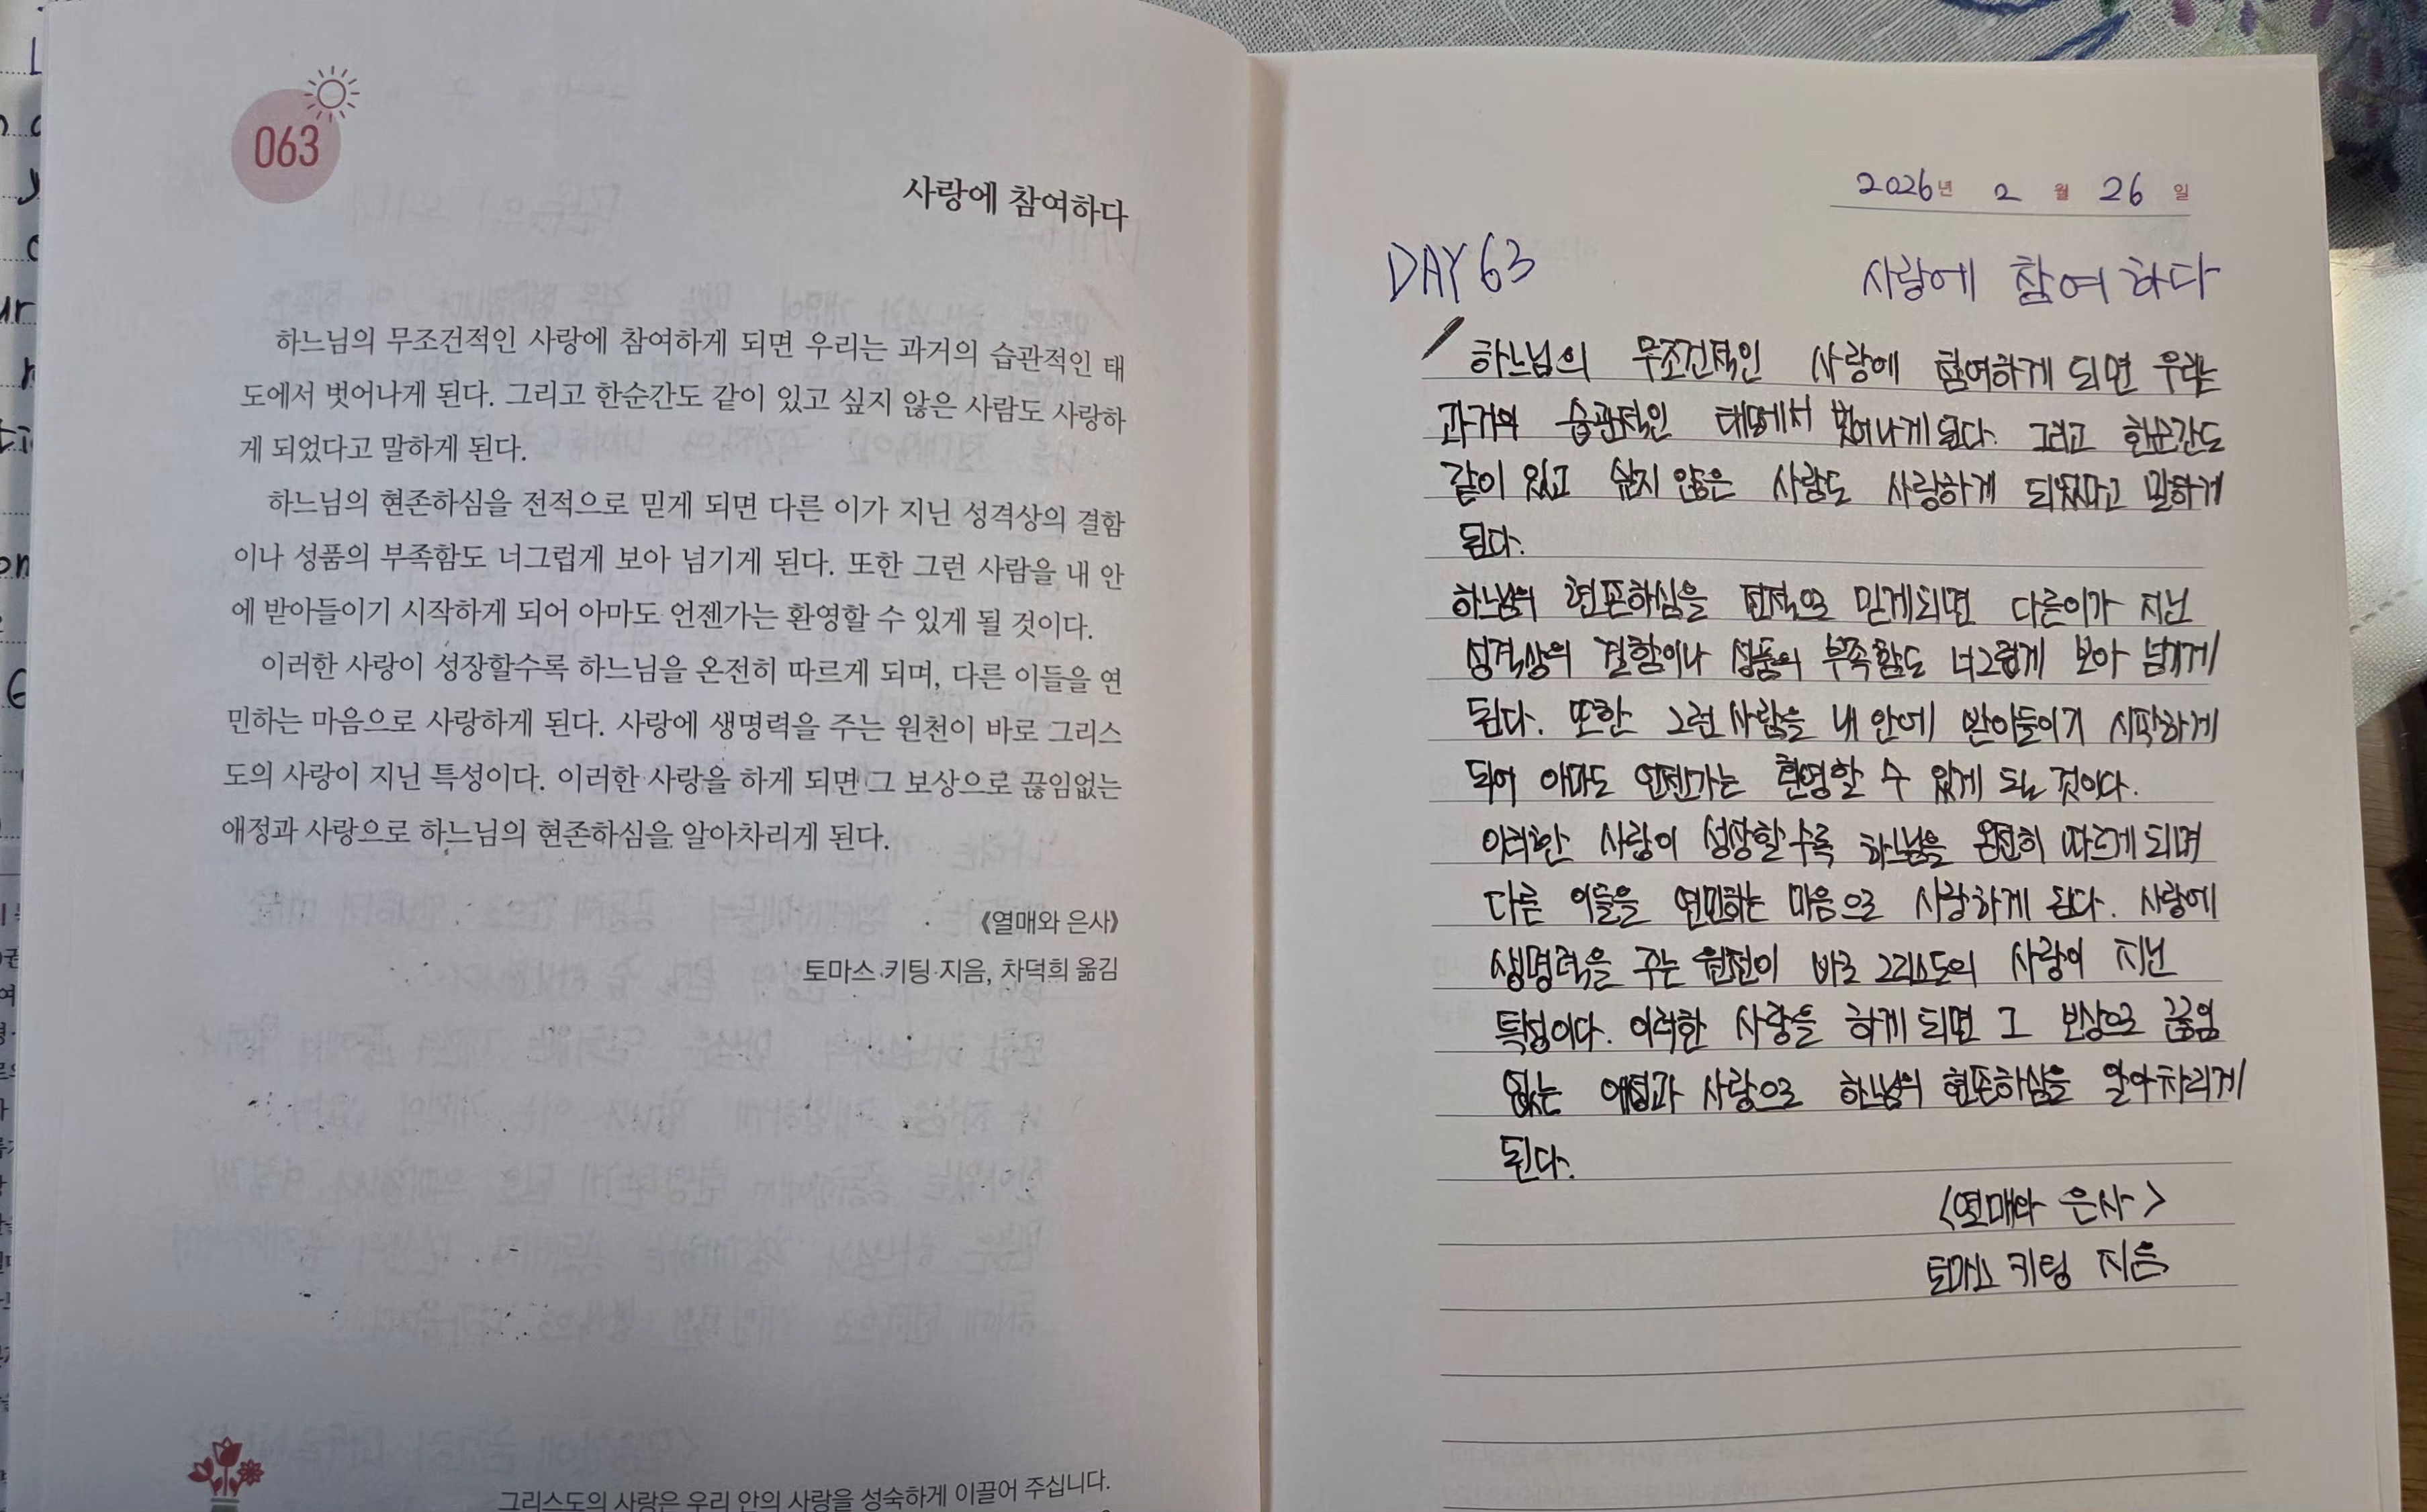 063
사랑에 참여하다
하느님의 무조건적인 사랑에 참여하게 되면 우리는 과거의 습관적인 태
도에서 벗어나게 된다. 그리고 한순간도 같이 있고 싶지 않은 사람도 사랑하
게 되었다고 말하게 된다.
하느님의 현존하심을 전적으로 믿게 되면 다른 이가 지닌 성격상의 결함
이나 성품의 부족함도 너그럽게 보아 넘기게 된다. 또한 그런 사람을 내 안
에 받아들이기 시작하게 되어 아마도 언젠가는 환영할 수 있게 될 것이다.
이러한 사랑이 성장할수록 하느님을 온전히 따르게 되며, 다른 이들을 연
민하는 마음으로 사랑하게 된다. 사랑에 생명력을 주는 원천이 바로 그리스
도의 사랑이 지닌 특성이다. 이러한 사랑을 하게 되면 그 보상으로 끊임없는
애정과 사랑으로 하느님의 현존하심을 알아차리게 된다.
《열매와 은사》
토마스 키팅 지음, 차덕희 옮김
그리스도의 사랑은 우리 안의 사랑을 성숙하게 이끌어 주십니다.
2026년 2월 26일
DAY 63
사랑에 참여하다
하느님의 무조건적인 사랑에 참여하게 되면 우리는
과거의 습관적인 태도에서 벗어나게 된다. 그리고 한순간도
같이 있고 싶지 않은 사람도 사랑하게 되었다고 말하게
된다.
하느님의 현존하심을 전적으로 믿게되면 다른이가 지닌
성격상의 결함이나 성품의 부족함도 너그럽게 보아 넘기게
된다. 또한 그런 사람을 내 안에 받아들이기 시작하게
되어 아마도 언젠가는 환영할 수 있게 될 것이다.
이러한 사랑이 성장할수록 하느님을 온전히 따르게 되며
다른 이들을 연민하는 마음으로 사랑하게 된다. 사랑에
생명력을 주는 원천이 바로 그리스도의 사랑이 지닌
특성이다. 이러한 사랑을 하게 되면 그 보상으로 끊임
없는 애정과 사랑으로 하느님의 현존하심을 알아차리게
된다.
<열매와 은사>
토마스 키팅 지음